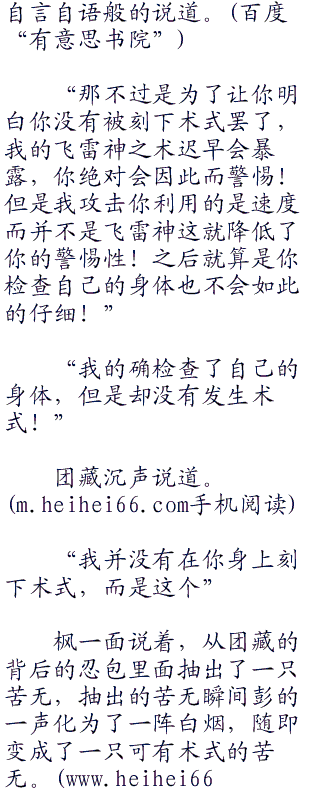 自言自语般的说道。(百度
“有意思书院”)
“那不过是为了让你明
白你没有被刻下术式罢了，
我的飞雷神之术迟早会暴
露，你绝对会因此而警惕！
但是我攻击你利用的是速度
而并不是飞雷神这就降低了
你的警惕性！之后就算是你
检查自己的身体也不会如此
的仔细！”
“我的确检查了自己的
身体，但是却没有发生术
式！”
团藏沉声说道。
(m.heihei66.com手机阅读)
“我并没有在你身上刻
下术式，而是这个”
枫一面说着，从团藏的
背后的忍包里面抽出了一只
苦无，抽出的苦无瞬间彭的
一声化为了一阵白烟，随即
变成了一只可有术式的苦
无。(www.heihei66